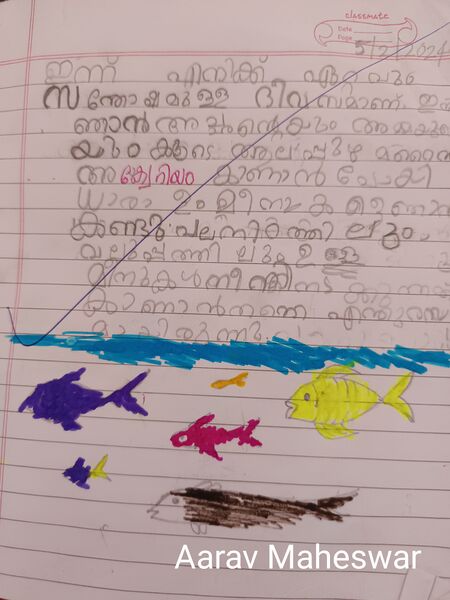 classmate
Date
Page
5/2/2024
ഇന്ന് എനിക്ക് ഏറ്റവും
സന്തോഷമുള്ള ദിവസമാണ്. ഇന്ന്
ഞാൻ അച്ഛന്റെയും അമ്മയുടെ
യും കൂടെ ആലപ്പുഴ മറൈൻ
അക്വേറിയം കാണാൻ പോയി
ധാരാളം മീനുകളെ ഞാൻ
കണ്ടു പലനിറത്തി ലും,
വലുപ്പത്തി ലും ഉള്ള
മീനുകൾ നീന്തി നട ക്കുന്നത്
കാണാൻ തന്നെ എന്തുരസ
മായിരുന്നു
Aarav Maheswar